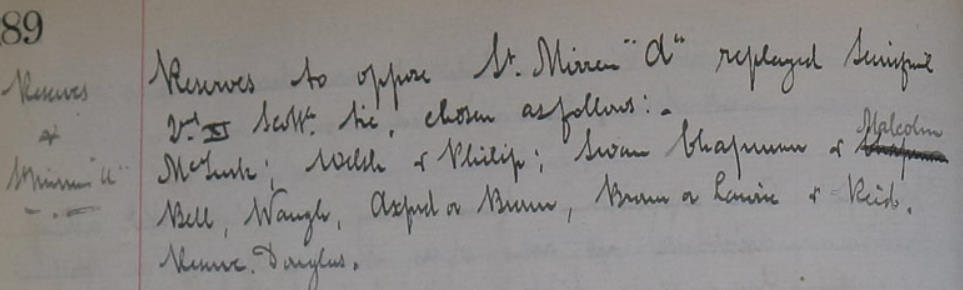 89
Reserves
v
St Mirren "A"
Reserves to oppose St. Mirren "A" replayed Semifinal
2nd XI Scott. tie, chosen as follows:-
McTurk; Welsh & Philip; Swan Chapman & Malcolm
Bell, Waugh, or Brown, Brown or Lawrie & Reid.
Reserve. Douglas.